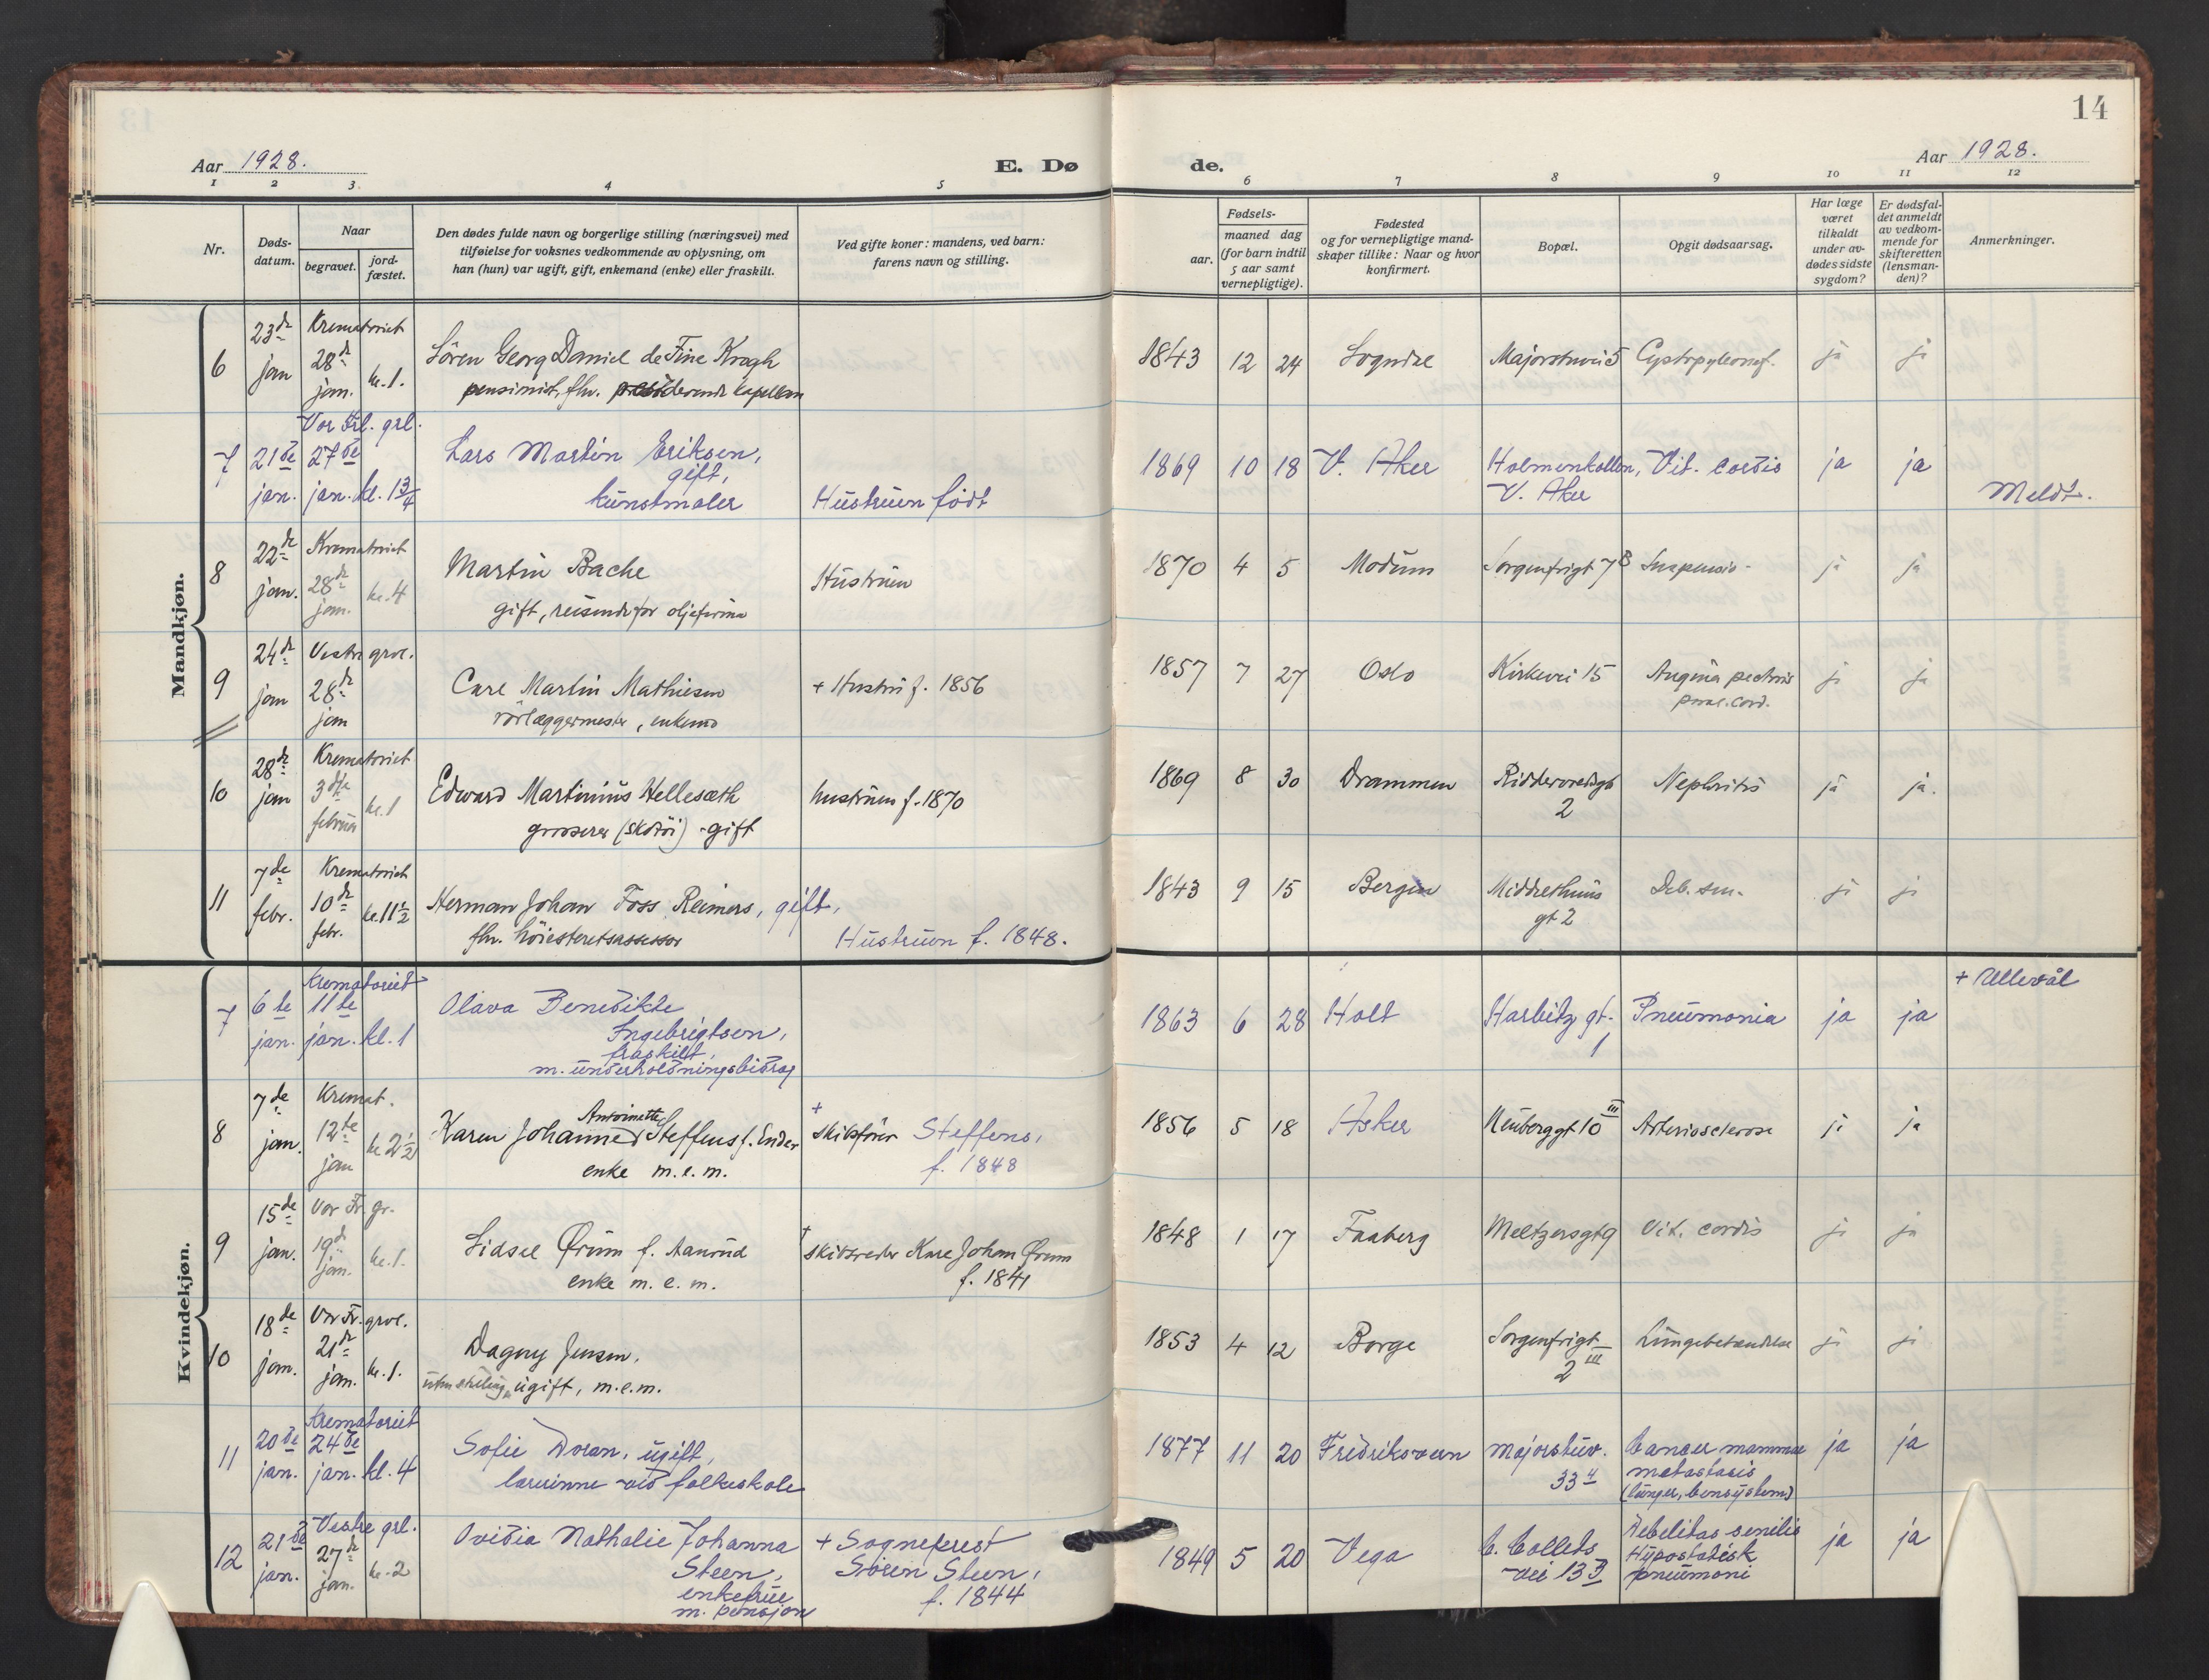 14
Aar 1928.
E. Dø
de.
Aar 1928.
1 2 3. 4 5 6 7 8 9 10 11 12
Nr.
Døds-
datum.
Naar
begravet.
jord-
fæstet.
Den dødes fulde navn og borgerlige stilling (næringsvei) med
tilføielse for voksnes vedkommende av oplysning, om
han (hun) var ugift, gift, enkemand (enke) eller fraskilt.
Ved gifte koner: mandens, ved barn:
farens navn og stilling.
Fødsels-
aar.
maaned dag
(for barn indtil
5 aar samt
vernepligtige).
Fødested
og for vernepligtige mand-
skaper tillike: Naar og hvor
konfirmert.
Bopæl.
Opgit dødsaarsag.
Har læge
været
tilkaldt
under av-
dødes sidste
sygdom?
Er dødsfal-
det anmeldt
av vedkom-
mende for
skifteretten
(lensman-
den)?
Anmerkninger.
Mandkjøn.
6 23de jan
Krematoriet
28de jan. kl. 1.
Sören Georg Daniel de Fine Krogh
pensionist, fhv. residerende kapellan
1843 12 24 Sogndal Majorstuvei 5 ja ja
7 21de jan.
Vor Frl. grl.
27de jan. kl. 1 3/4
Lars Martin Eriksen,
gift,
kunstmaler
Hustruen født
1869 10 18 V. Aker Holmenkollen, V. Aker Vit. cordis ja ja
Meldt.
8 22de jan.
Krematoriet
28de jan. kl. 4
Martin Bache
gift, reisende for oljefirma
Hustruen
1870 4 5 Modum Sorgenfrigt 7B Suspensio - ja ja
9 24de jan
Vestre grvl.
28de jan
Carl Martin Mathiesen
rörlæggermester, enkemd
+ Hustru f. 1856
1857 7 27 Oslo Kirkevei 15 Angina pectoris
ja ja
10 28de jan
Krematoriet
3dje februar kl. 1
Edward Martinius Hellesæth
grosserer (skotöi) - gift
hustruen f. 1870
1869 8 30 Drammen Riddervoldsgt 2 Nephritis ja ja.
11 7de febr.
Krematoriet
10de febr. kl. 11 1/2
Herman Johan Foss Reimers, gift,
fhv. höiesteretsassessor
Hustruen f. 1848.
1843 9 15 Bergen Middelthuns gt 2 Deb. sen. ja ja
Kvindekjøn.
7 6te jan.
Krematoriet
11te jan. kl. 1
Olava Benedikte
Ingebrigtsen,
fraskilt,
m. underholdningsbidrag
1863 6 28 Holt Harbitz gt. 1 Pneumonia ja ja
+ Ullevål
8 7de jan.
Kremat.
12te jan kl 2 1/2
Antoinette
Karen Johanne Steffens f. Ender
enke m.e.m.
+
skibsförer Steffens,
f. 1848
1856 5 18 Asker Neuberggt 10 III Arteriosclerose ja ja
9 15de jan.
Vor Fr. gr.
19de jan. kl. 1.
Sidsel Ørum f. Aanrud
enke m. e. m.
+
skibsreder Karl Johan Ørum
f. 1841
1848 1 17 Faaberg Meltzersgt 9 Vit. cordis ja ja
10 18de jan.
Vor Fr. grvl.
21de jan. kl. 1.
Dagny Jensen,
ugift, m.e.m.
1853 4 12 Borge Sorgenfrigt 2 III Lungebetændelse ja ja
11 20de jan.
Krematoriet
24de jan. kl. 4
Sofie Doran, ugift,
lærerinne ved folkeskole
1877 11 20 Fredriksvern Majorstuv. 33 4 Cancer mammae
metastasis
ja ja
12 21de jan.
Vestre grl.
27de jan. kl. 2
Ovidia Nathalie Johanna
Steen,
enkefrue
m. pensjon
+ Sogneprest
Sören Steen,
f. 1844
1849 5 20 Vega C. Colletts vei 13 Debilitas senilis
Hypostatisk
pneumoni
ja ja